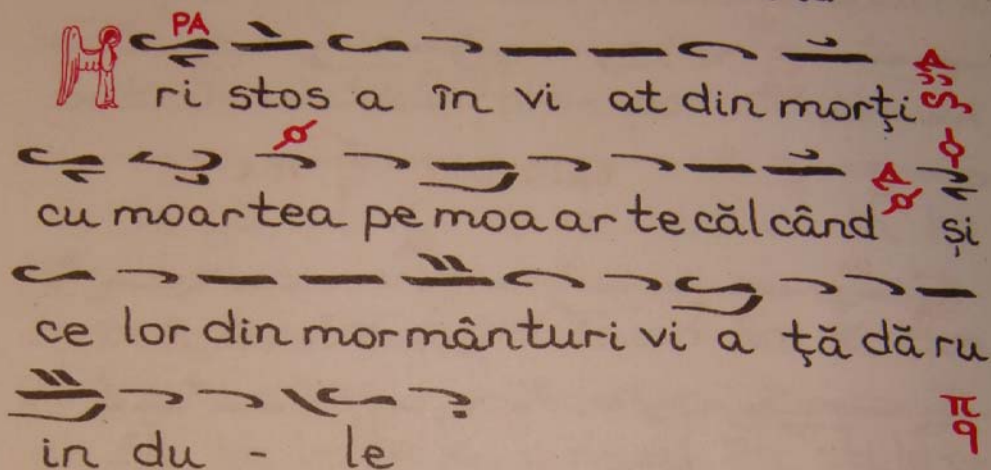 PA
Hri stos a în vi at din morţi
cu moar tea pe moa ar te căl când şi
ce lor din mor mân turi vi a ţă dă ru
in du - le
π
q